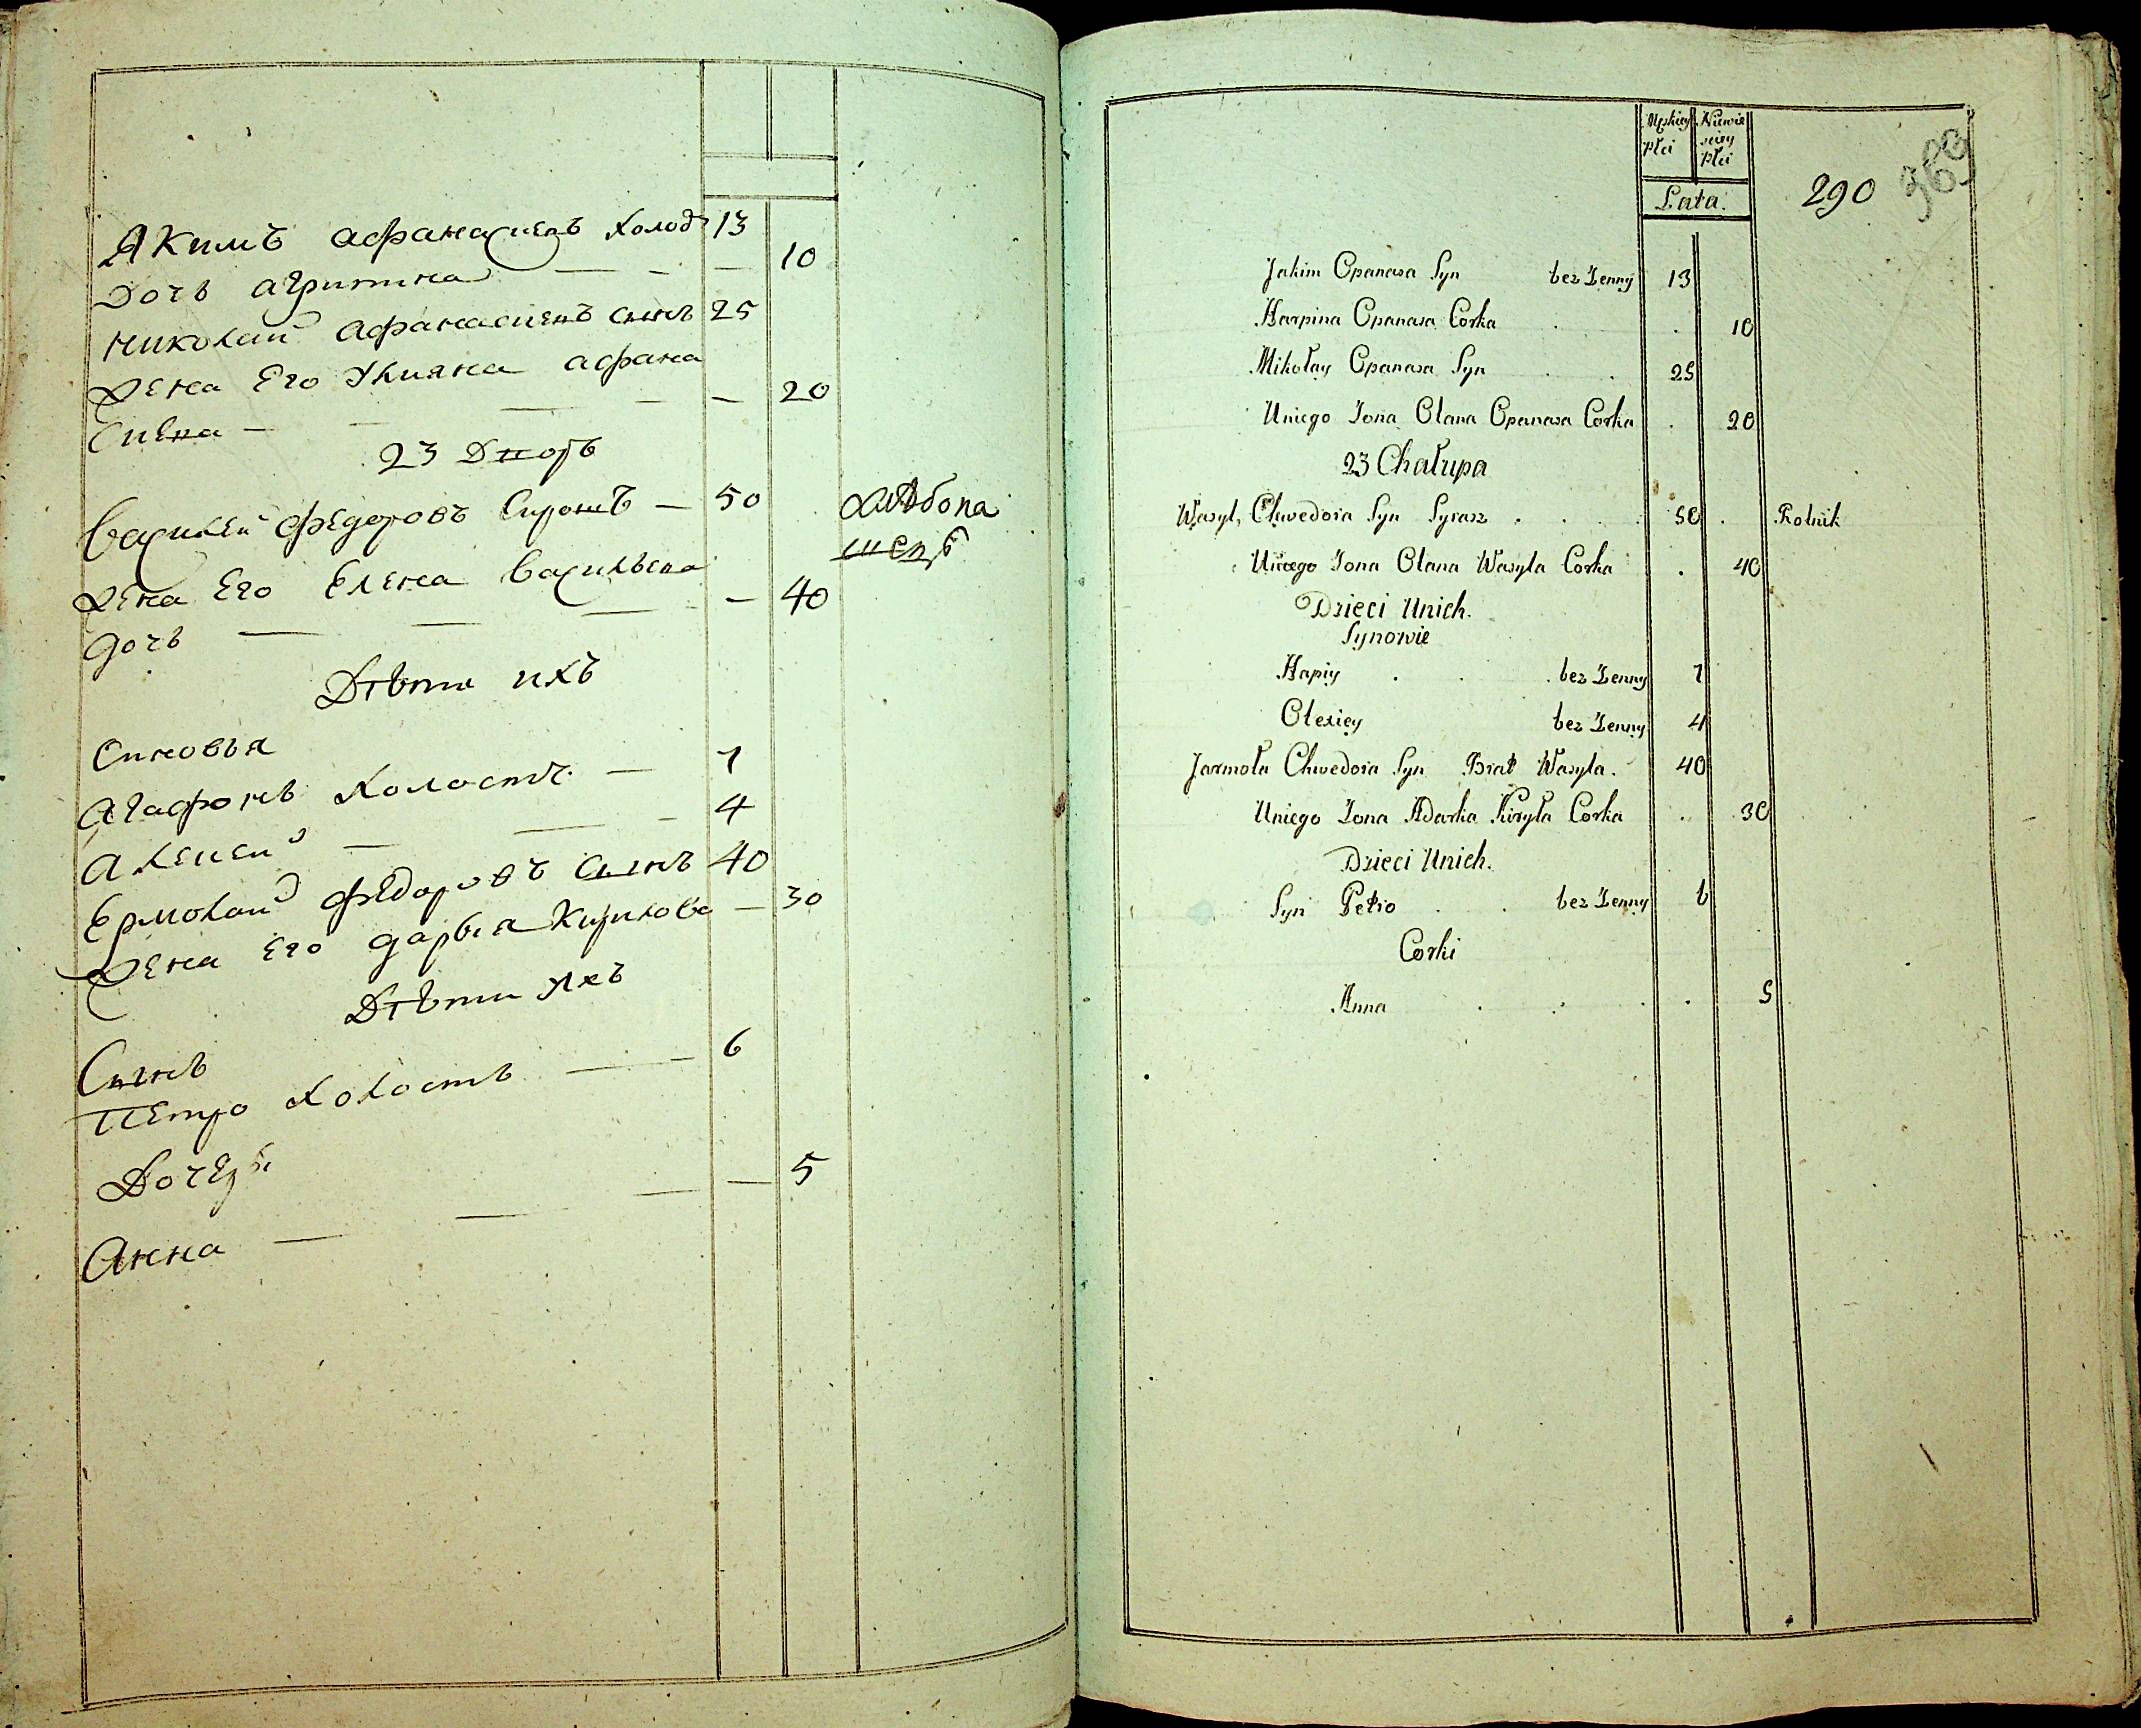 Якимъ афанасиевъ холод 13
Дочь агрипина — — — 10
николай афанасиевъ сынъ 25
Жена Его Улияна афана
сиева — — — — — 20
23 Дворъ
Василей федоровъ Сирошъ — 50 хлѣбопа
шецъ
Жена Его Елена Васильева
дочь — — — — 40
Дѣти ихъ
Синовья
агафонъ холостъ — 7
алексей — — — 4
Ермолай федоровъ сынъ 40
Жена Его дарья Кирилова — 30
Дѣти ихъ
Сынъ
Петро холостъ — — 6
Дочеры
Анна — — — — 5
Męskiey Płci Niewie sciey Płci
Lata.
290 369
Jakim Opanasa Syn bez Zenny 13
Harpina Opanasa Corka . . 10
Mikołay Opanasa Syn . . 25
Uniego Zona Olana Opanasa Corka . 20
23 Chałupa
Wasyl, Chwedora Syn Syrasz . . . . 50 . Rolnik
Uniego Zona Olana Wasyla Corka . 40
Dzieci Unich.
Synowie
Hapiy . . . bez Zenny 7
Olexiey bez Zenny 4
Jarmoła Chwedora Syn Brat Wasyla . 40
Uniego Zona Adarka Kiryła Corka . 30
Dzieci Unich.
Syn Petro . . bez Zenny 6
Corki
Anna . . . . 5